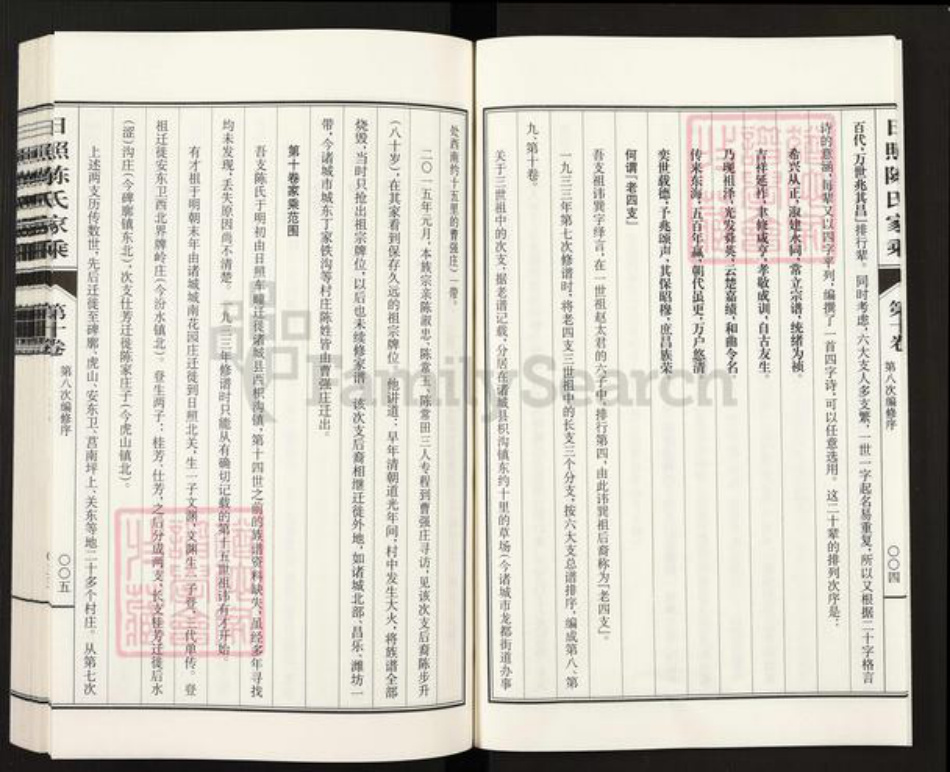 日照陈氏家乘
第十卷
第八次编修序
〇〇四
百代,万世兆其昌』排行辈。同时考虑,六大支人多支繁,一世一字起名易重复,所以又根据二十字格言
诗的意涵,每辈又以四字平列,编撰了一首四字诗,可以任意选用。这二十辈的排列次序是:
希兴从正,淑建永同,常立宗谱,统绪为祯。
吉祥延祚,聿修咸亨,孝敬成训,自古友生。
乃现祖泽,光发舜英,云楚嘉绩,和曲令名。
传来东海,五百年赢,朝代虽更,万户悠清
奕世载德,予兆颂声,其保昭穆,庶昌族荣
何谓『老四支』
吾支祖讳巽字绎言,在一世祖赵太君的六子中,排行第四,由此讳巽祖后裔称为『老四支』。
一九三三年第七次修谱时,将老四支三世祖中的长支三个分支,按六大支总谱排序,编成第八、第
九、第十卷。
关于三世祖中的次支,据老谱记载,分居在诸城县枳沟镇东约十里的草场(今诸城市龙都街道办事
处西南约十五里的曹强庄)一带。
二〇一五年元月,本族宗亲陈淑忠、陈常玉、陈常田三人专程到曹强庄寻访,见该次支后裔陈步升
(八十岁),在其家看到保存久远的祖宗牌位。他讲道:早年清朝道光年间,村中发生大火,将族谱全部
烧毁,当时只抢出祖宗牌位,以后也未续修家谱。该次支后裔相继迁徙外地,如诸城北部、昌乐、潍坊一
带,今诸城市城东丁家铁沟等村庄陈姓皆由曹强庄迁出。
第十卷家乘范围
吾支陈氏于明初由日照车疃迁徙诸城县西枳沟镇,第十四世之前的族谱资料缺失,虽经多年寻找
均未发现,丢失原因尚不清楚。一九三三年修谱时只能从有确切记载的第十五世祖讳有才开始。
有才祖于明朝末年由诸城城南花园庄迁徙到日照北关,生一子文渊,文渊生一子登,三代单传。登
祖迁徙安东卫西北界牌岭庄(今汾水镇北)。登生两子:桂芳、仕芳,之后分成两支,长支桂芳迁徙后水
(涩)沟庄(今碑廓镇东北),次支仕芳迁徙陈家庄子(今虎山镇北)。
上述两支历传数世,先后迁徙至碑廓、虎山、安东卫、莒南坪上、关东等地二十多个村庄。从第七次
日照陈氏家乘
第十卷
第八次编修序
〇〇五
FamilySearch